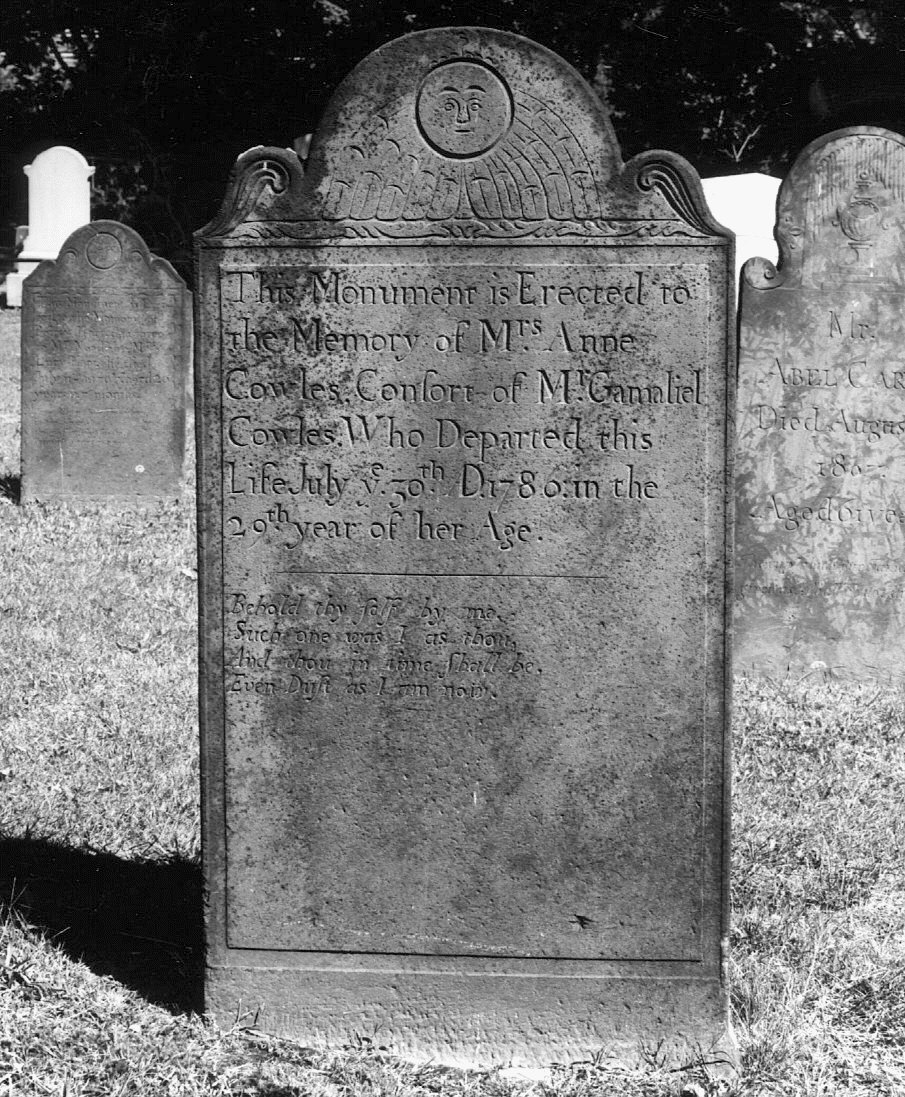 This Monument is Erected to
the Memory of Mrs. Anne
Cowles, Conſort of Mr. Gamaliel
Cowles. Who Departed this
Life July ye. 30th. D. 1780. in the
29th year of her Age.
Behold thy ſelf by me,
Such one was I as thou,
And thou in time ſhall be.
Even Duſt as I am now.
Mr.
ABEL CAR
Died Augus
Aged 61 ye